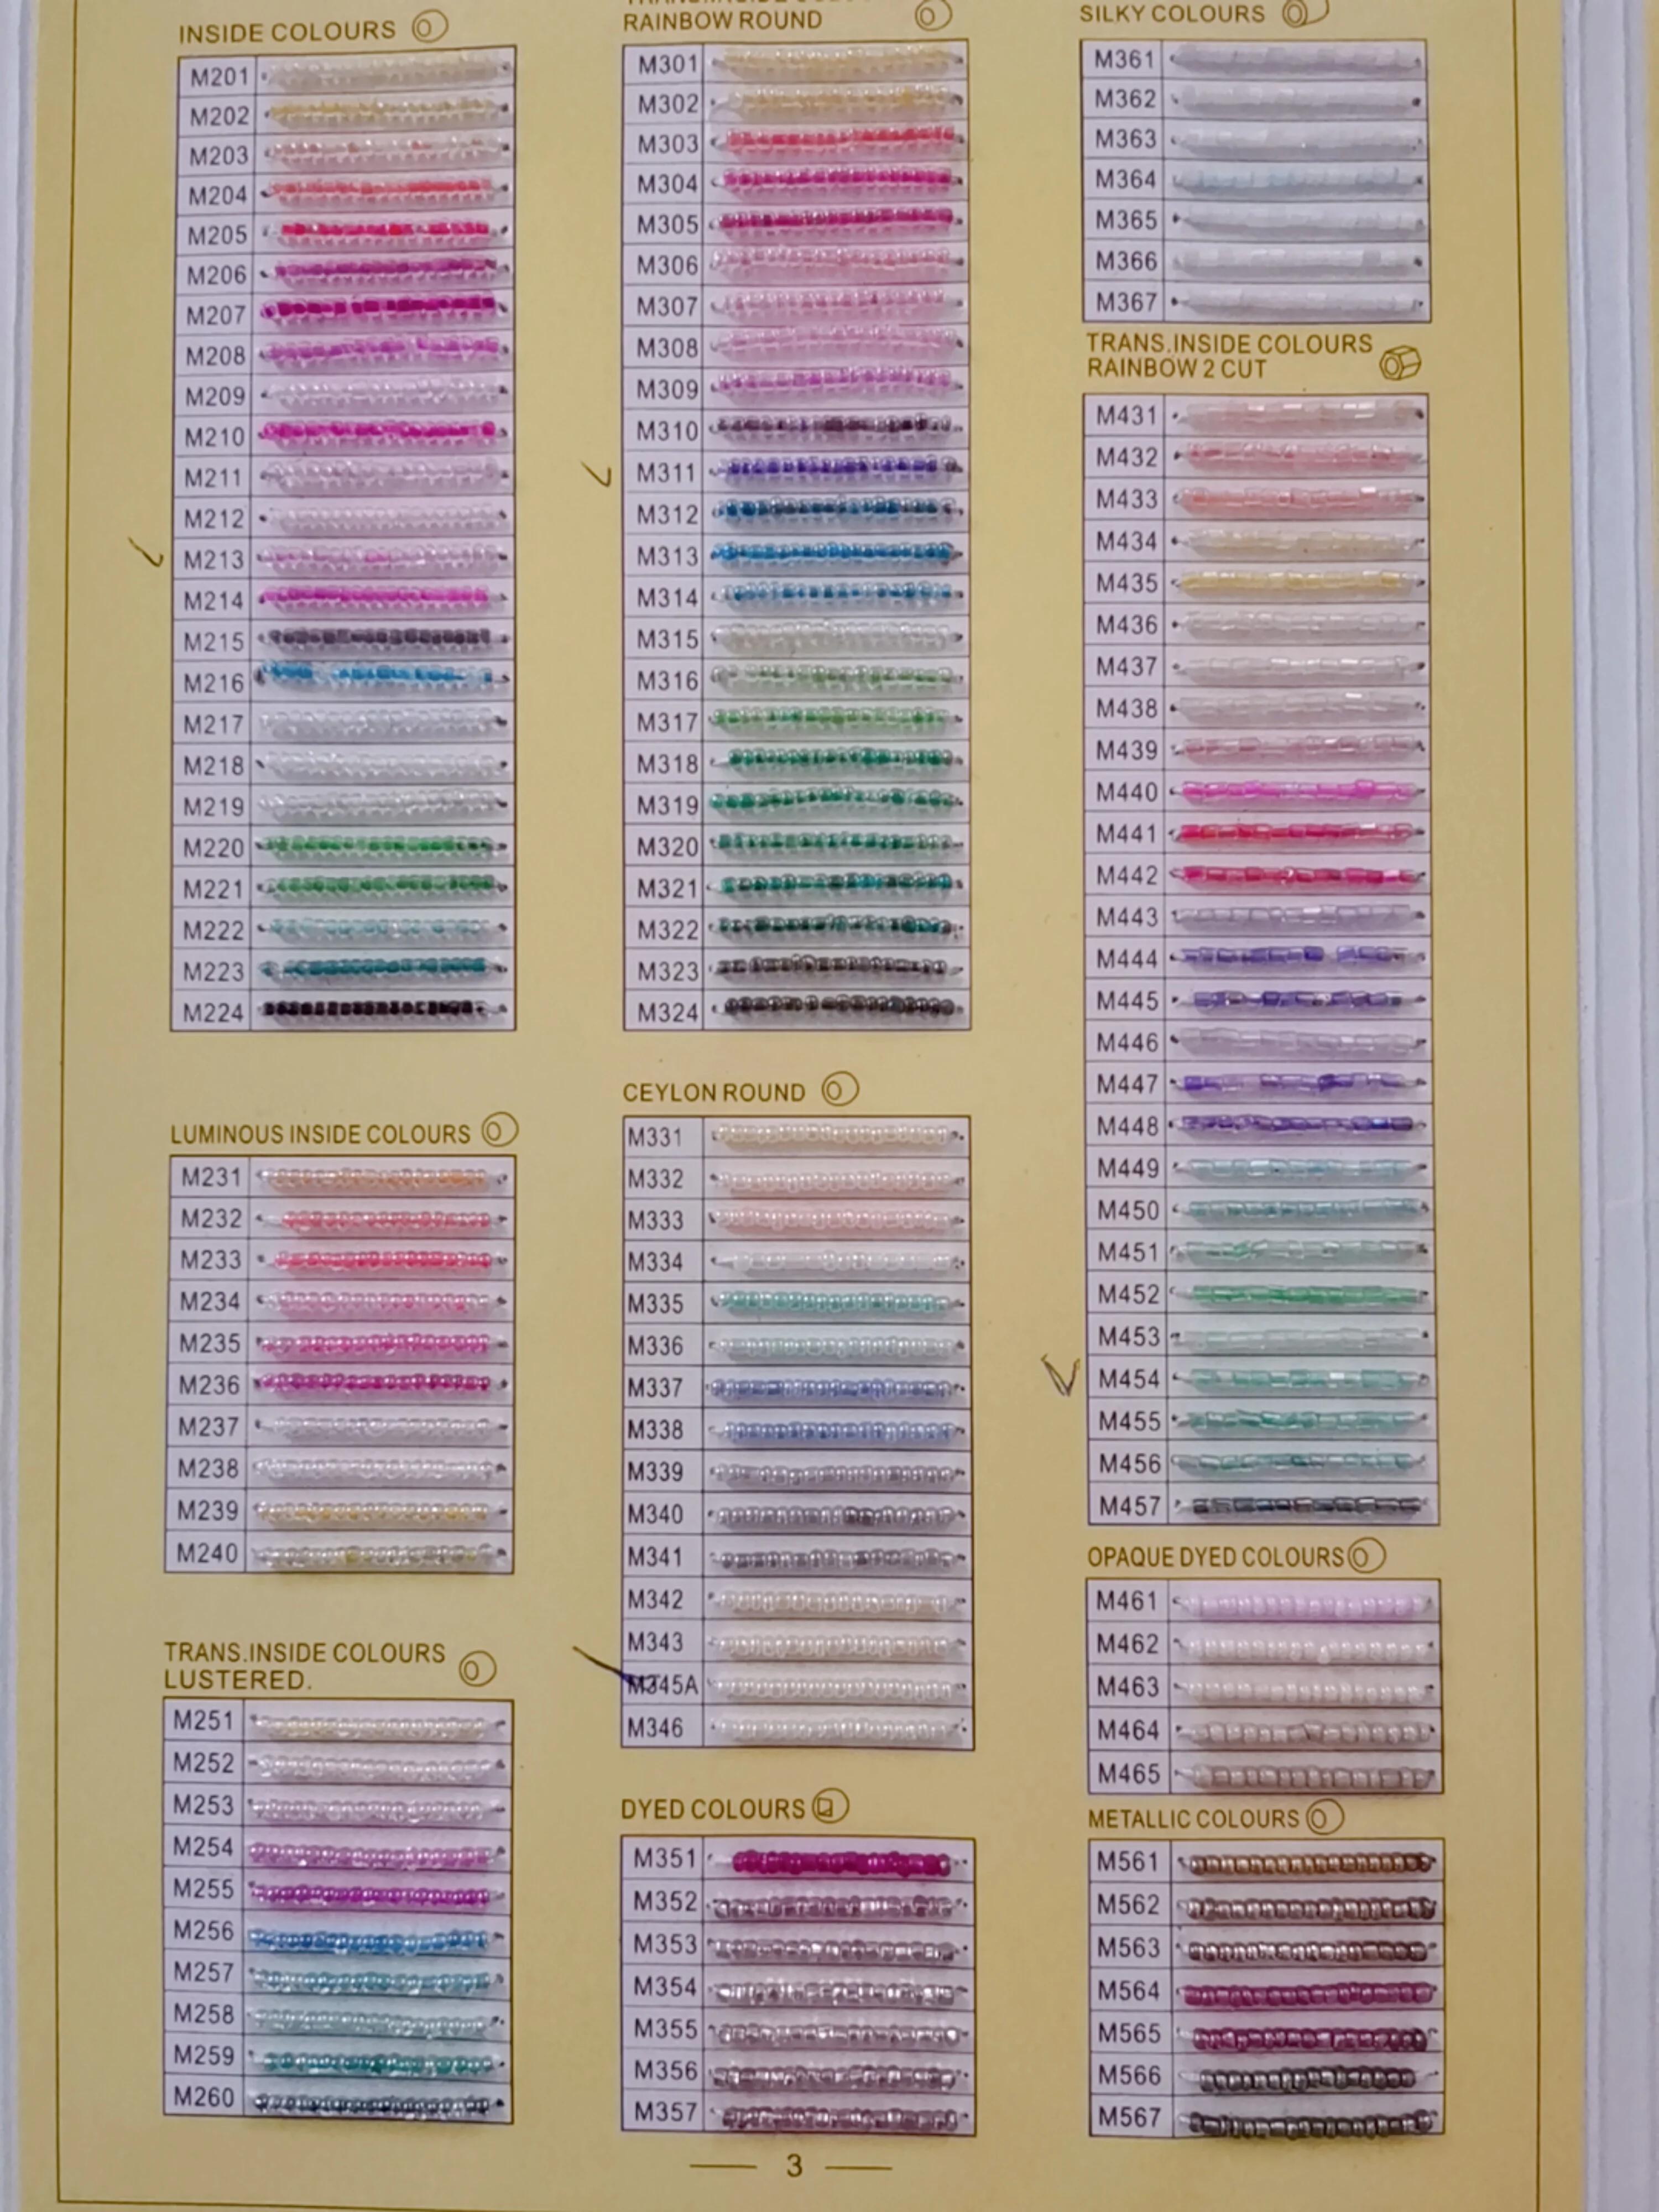 INSIDE COLOURS
M201
M202
M203
M204
M205
M206
M207
M208
M209
M210
M211
M212
M213
M214
M215
M216
M217
M218
M219
M220
M221
M222
M223
M224
LUMINOUS INSIDE COLOURS
M231
M232
M233
M234
M235
M236
M237
M238
M239
M240
TRANS.INSIDE COLOURS
LUSTERED.
M251
M252
M253
M254
M255
M256
M257
M258
M259
M260
RAINBOW ROUND
M301
M302
M303
M304
M305
M306
M307
M308
M309
M310
M311
M312
M313
M314
M315
M316
M317
M318
M319
M320
M321
M322
M323
M324
CEYLON ROUND
M331
M332
M333
M334
M335
M336
M337
M338
M339
M340
M341
M342
M343
M345A
M346
DYED COLOURS
M351
M352
M353
M354
M355
M356
M357
SILKY COLOURS
M361
M362
M363
M364
M365
M366
M367
TRANS.INSIDE COLOURS
RAINBOW 2 CUT
M431
M432
M433
M434
M435
M436
M437
M438
M439
M440
M441
M442
M443
M444
M445
M446
M447
M448
M449
M450
M451
M452
M453
M454
M455
M456
M457
OPAQUE DYED COLOURS
M461
M462
M463
M464
M465
METALLIC COLOURS
M561
M562
M563
M564
M565
M566
M567
3